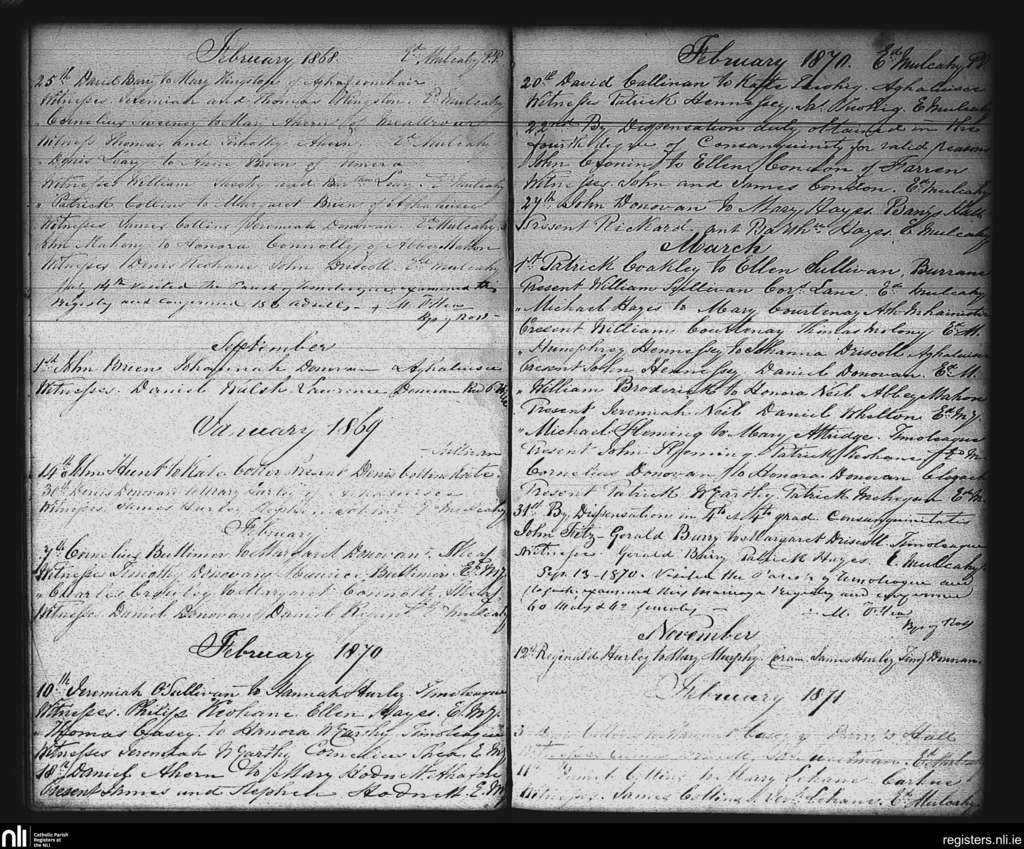 February 1868 Ed Mulcahy P.P.
25th David Barry to Mary Kingston of
Witnesses Jeremiah and Thomas Kingston. Ed Mulcahy
" Cornelius Sweeny to Mary Ahern of
Witness Thomas and Timothy Ahern Ed Mulcahy
" Denis Leary to
Witnesses William Sheehy and Leary. Ed Mulcahy
" Patrick Collins to Margaret Brien of
Witnesses James Collins Jeremiah Donovan Ed Mulcahy
John Mahony to Honora Connolly of Abbey Mahon
Witnesses Denis Keohane John Driscoll. Ed Mulcahy
July 14th visited the Parish of Timoleague, examined this
Registry and confirmed 186 adults, + M. O'Hea
Bp of Ross
September
1st John Brien Johannah Donovan
Witnesses. Daniel Walsh Lawrence Donovan
January 1869
Sullivan
14th John Hunt to Kate Present Denis
Denis Donovan to Mary of
Witnesses James Hurley Ed Mulcahy
February
7th Cornelius Buttimer to Margaret Donovan.
Witnesses Timothy Donovan Maurice Buttimer Ed My
" Charles Crowley to Margaret Connolly
Witnesses Daniel Donovan Daniel Regan Ed Mulcahy
February 1870
10th Jeremiah O'Sullivan to Hannah Hurley Timoleague
Witnesses. Philip Keohane Ellen Hayes. E. My.
" Thomas Casey to Honora McCarthy Timoleague
Witnesses Jeremiah McCarthy Cornelius E. My
18th Daniel Ahern to Mary Hodnett
Present James and Stephen Hodnett E. My
February 1870. Ed Mulcahy P.P.
20th David Callinan to Kate
Witness Patrick Hennessy E Mulcahy
22nd By Dispensation duly obtained in the
fourth degree of Consanguinity for valid reasons
John Cronin to Ellen Condon of Farren
Witnesses. John and James Condon. Ed Mulcahy
27th John Donovan to Mary Hayes. Barrys Hall
Present Rickard and Barthw Hayes. E. Mulcahy
March
1st Patrick Coakley to Ellen Sullivan, Burrane
Present William Sullivan Cors Lane Ed Mulcahy
" Michael Hayes to Mary Courtenay
Present William Courtenay Thomas Ed M.
" Humphrey Hennessy to Johanna Driscoll
Present John Hennessy Daniel Donovan. Ed M.
" William Broderick to Honora Neil. Abbey Mahon
Present Jeremiah Neil Daniel Whelton Ed My.
" Michael Fleming to Mary Attridge. Timoleague
Present John Fleming Patrick Keohane Ed M
Cornelius Donovan to Honora Donovan
Present Patrick McCarthy Patrick Mehegan Ed M
31st By Dispensation in 4th et 4th grad. Consanguinitatis
John Fitz-Gerald Barry to Margaret Driscoll Timoleague
Witnesses. Gerald Barry Patrick Hayes. E Mulcahy
Sept. 13-1870. Visited the Parish of Timoleague and
examined this Marriage Registry and confirmed
60 males & 42 females - M. O'Hea
Bp of Ross
November
12th Reginald Hurley to Mary Murphy coram James Hurley Timy Donovan
February 1871
Collins to Margaret Casey of Barrys Hall
Ed Mulcahy
11th Daniel Collins to Mary Lehane.
Witnesses. James Collins & Lehane. Ed Mulcahy
nli Catholic Parish
Registers at
the NLI
registers.nli.ie